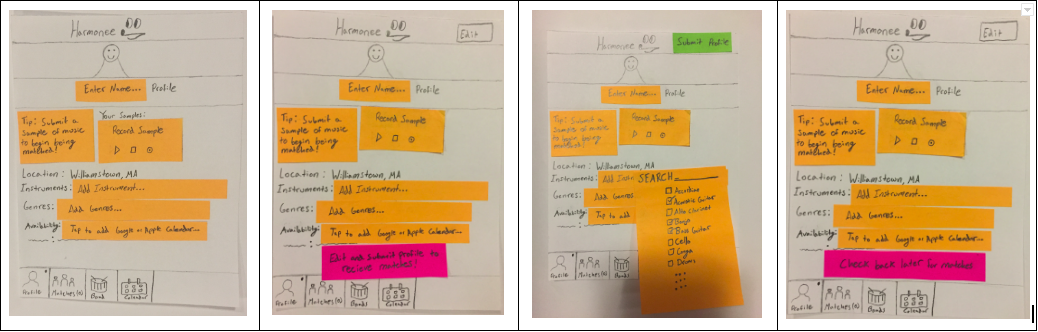 Harmonee
Enter Name... Profile
Tip: Submit a
sample of music
to begin being
matched!
Your Samples:
Record Sample
Location: Williamstown, MA
Instruments: Add Instrument...
Genres: Add Genres...
Availability: Tap to add Google or Apple Calendar...
Profile
Matches(0)
Bands
Calendar
Harmonee
Edit
Enter Name... Profile
Tip: Submit a
sample of music
to begin being
matched!
Record Sample
Location: Williamstown, MA
Instruments: Add Instrument...
Genres: Add Genres...
Availability: Tap to add Google or Apple Calendar...
Edit and submit profile to
recieve matches!
Profile
Matches(0)
Bands
Calendar
Harmonee
Submit Profile
Enter Name... Profile
Tip: Submit a
sample of music
to begin being
matched!
Record Sample
Location: Williamstown, MA
Instruments: Add Instr
Genres: Add
Availability: Tap to add
SEARCH
Accordion
Acoustic Guitar
Alto clarinet
Banjo
Bass Guitar
Cello
Conga
Drums
Profile
Matches(0)
Bands
Harmonee
Edit
Enter Name... Profile
Tip: Submit a
sample of music
to begin being
matched!
Record Sample
Location: Williamstown, MA
Instruments: Add Instrument...
Genres: Add Genres...
Availability: Tap to add Google or Apple Calendar...
Check back later for matches
Profile
Matches(0)
Bands
Calendar